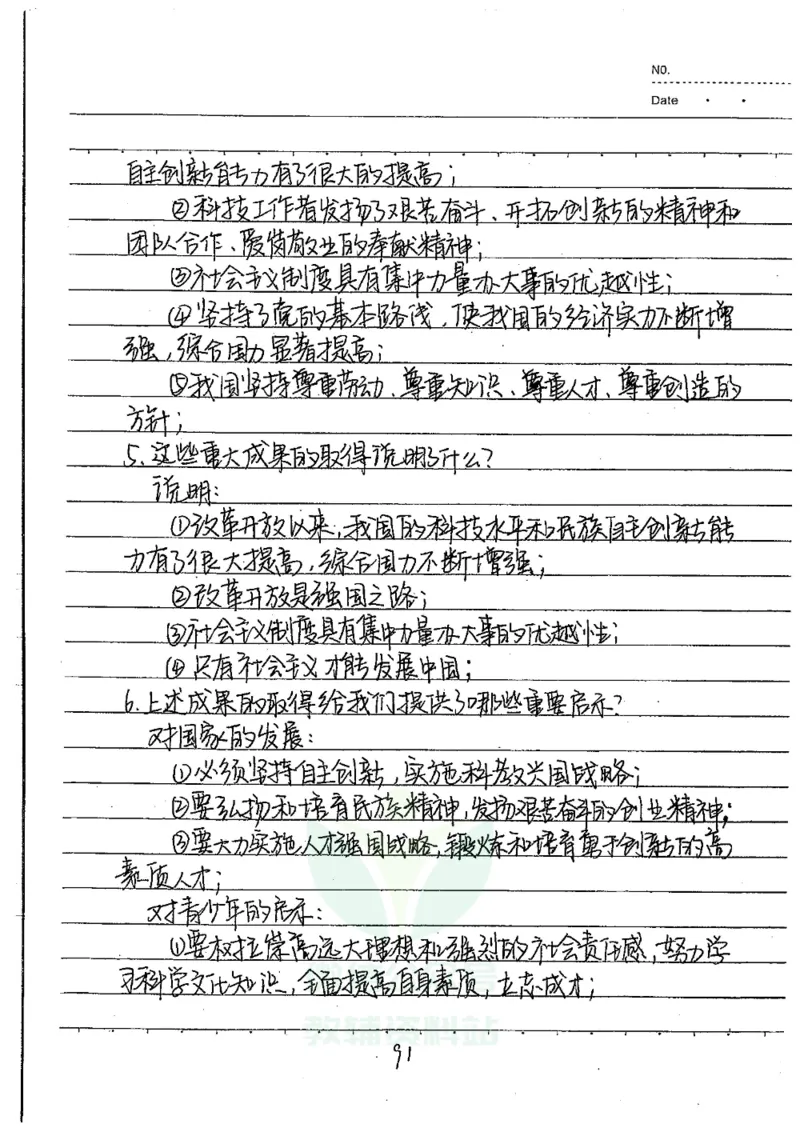 NO.
Date
自主创新能力有了很大的提高；
②科技工作者发扬了艰苦奋斗、开拓创新的精神和
团队合作、爱岗敬业的奉献精神；
③社会主义制度具有集中力量办大事的优越性；
④坚持了党的基本路线，使我国的经济实力不断增
强，综合国力显著提高；
⑤我国坚持尊重劳动、尊重知识、尊重人才、尊重创造的
方针；
5.这些重大成果的取得说明了什么？
说明：
①改革开放以来，我国的科技水平和民族自主创新能
力有了很大提高，综合国力不断增强；
②改革开放是强国之路；
③社会主义制度具有集中力量办大事的优越性；
④只有社会主义才能发展中国；
6.上述成果的取得给我们提供了哪些重要启示？
对国家的发展：
①必须坚持自主创新，实施科教兴国战略；
②要弘扬和培育民族精神，发扬艰苦奋斗的创业精神；
③要大力实施人才强国战略，锻炼和培育勇于创新的高
素质人才；
对青少年的启示：
①要树立崇高远大理想和强烈的社会责任感，努力学
习科学文化知识，全面提高自身素质，立志成才；
教辅资料站
91